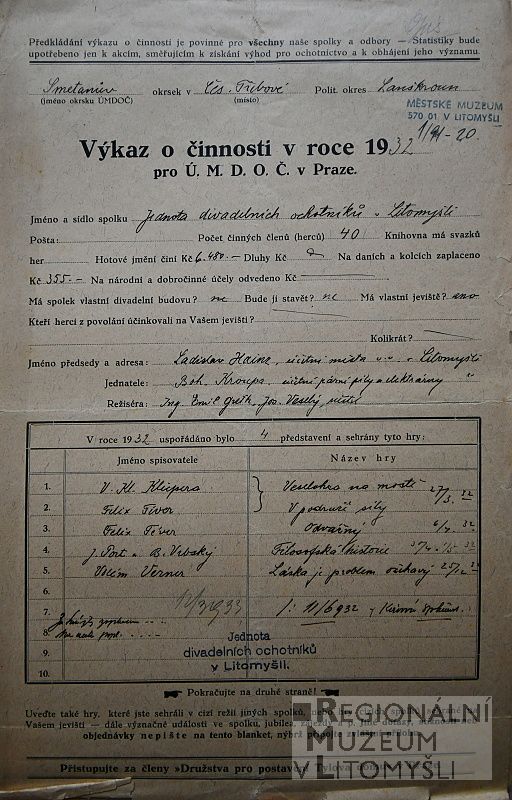 Předkládání výkazu o činnosti je povinné pro všechny naše spolky a odbory — Statistiky bude
upotřebeno jen k akcím, směřujícím k získání výhod pro ochotnictvo a k obhájení jeho významu.
Smetanův okrsek v Čes. Třebové Polit. okres Lanškroun
(jméno okrsku ÚMDOČ) (místo)
MĚSTSKÉ MUZEUM
570 01 V LITOMYŠLI
Výkaz o činnosti v roce 1932
pro Ú. M. D. O. Č. v Praze.
Jméno a sídlo spolku Jednota divadelních ochotníků v Litomyšli
Pošta: Počet činných členů (herců) 40 Knihovna má svazků
her Hotové jmění činí Kč 6.480.— Dluhy Kč Na daních a kolcích zaplaceno
Kč 355.— Na národní a dobročinné účely odvedeno Kč
Má spolek vlastní divadelní budovu? ne Bude ji stavět? ne Má vlastní jeviště? ano
Kteří herci z povolání účinkovali na Vašem jevišti?
Kolikrát?
Jméno předsedy a adresa: Ladislav Hainz, účetní města v Litomyšli
Jednatele: Boh. Kroupa, účetní parní pily a elektrárny "
Režiséra: Ing. Emil Jos. Veselý,
V roce 1932 uspořádáno bylo 4 představení a sehrány tyto hry:
Jméno spisovatele Název hry
1. V. Kl. Klicpera Veselohra na mostě 27/3. 32
2. Felix Féver V područí síly
3. Felix Féver Odvážný 6/4 32
4. J. Port a B. Vrbský Filosofská historie 32
5. Vilém Werner Láska je problem 32
6.
7. 12/3 1933 11/6 932
8.
9. Jednota
divadelních ochotníků
v Litomyšli.
10.
Pokračujte na druhé straně!
Uveďte také hry, které jste sehráli v cizí režii jiných spolků,
Vašem jevišti — dále význačné události ve spolku, jubilea,
objednávky nepište na tento blanket, nýbrž
Přistupujte za členy »Družstva pro postavení Tylova
REGIONÁLNÍ
MUZEUM
V LITOMYŠLI